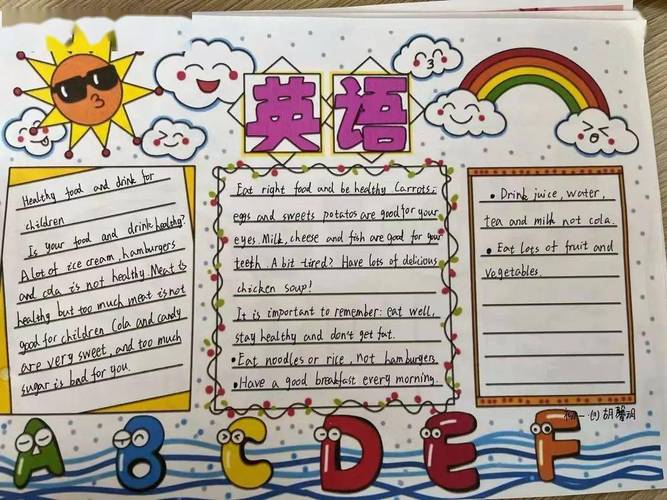 英语
Healthy food and drink for
children
Is your food and drink healthy?
A lot of ice cream, hamburgers
and cola is not healthy. Meat is
healthy but too much meat is not
good for children Cola and candy
are very sweet, and too much
sugar is bad for you.
Eat right food and be healthy Carrots:
eggs and sweets potatos are good for your
eyes. Milk, cheese and fish are good for your
teeth. A bit tired? Have lots of delicious
chicken soup!
It is important to remember: eat well,
stay healthy and don't get fat.
• Eat noodles or rice, not hamburgers
• Have a good breakfast every morning.
• Drink juice, water,
tea and milk not cola.
• Eat lots of fruit and
vegetables
初一·(1) 胡馨玥
A B C D E F